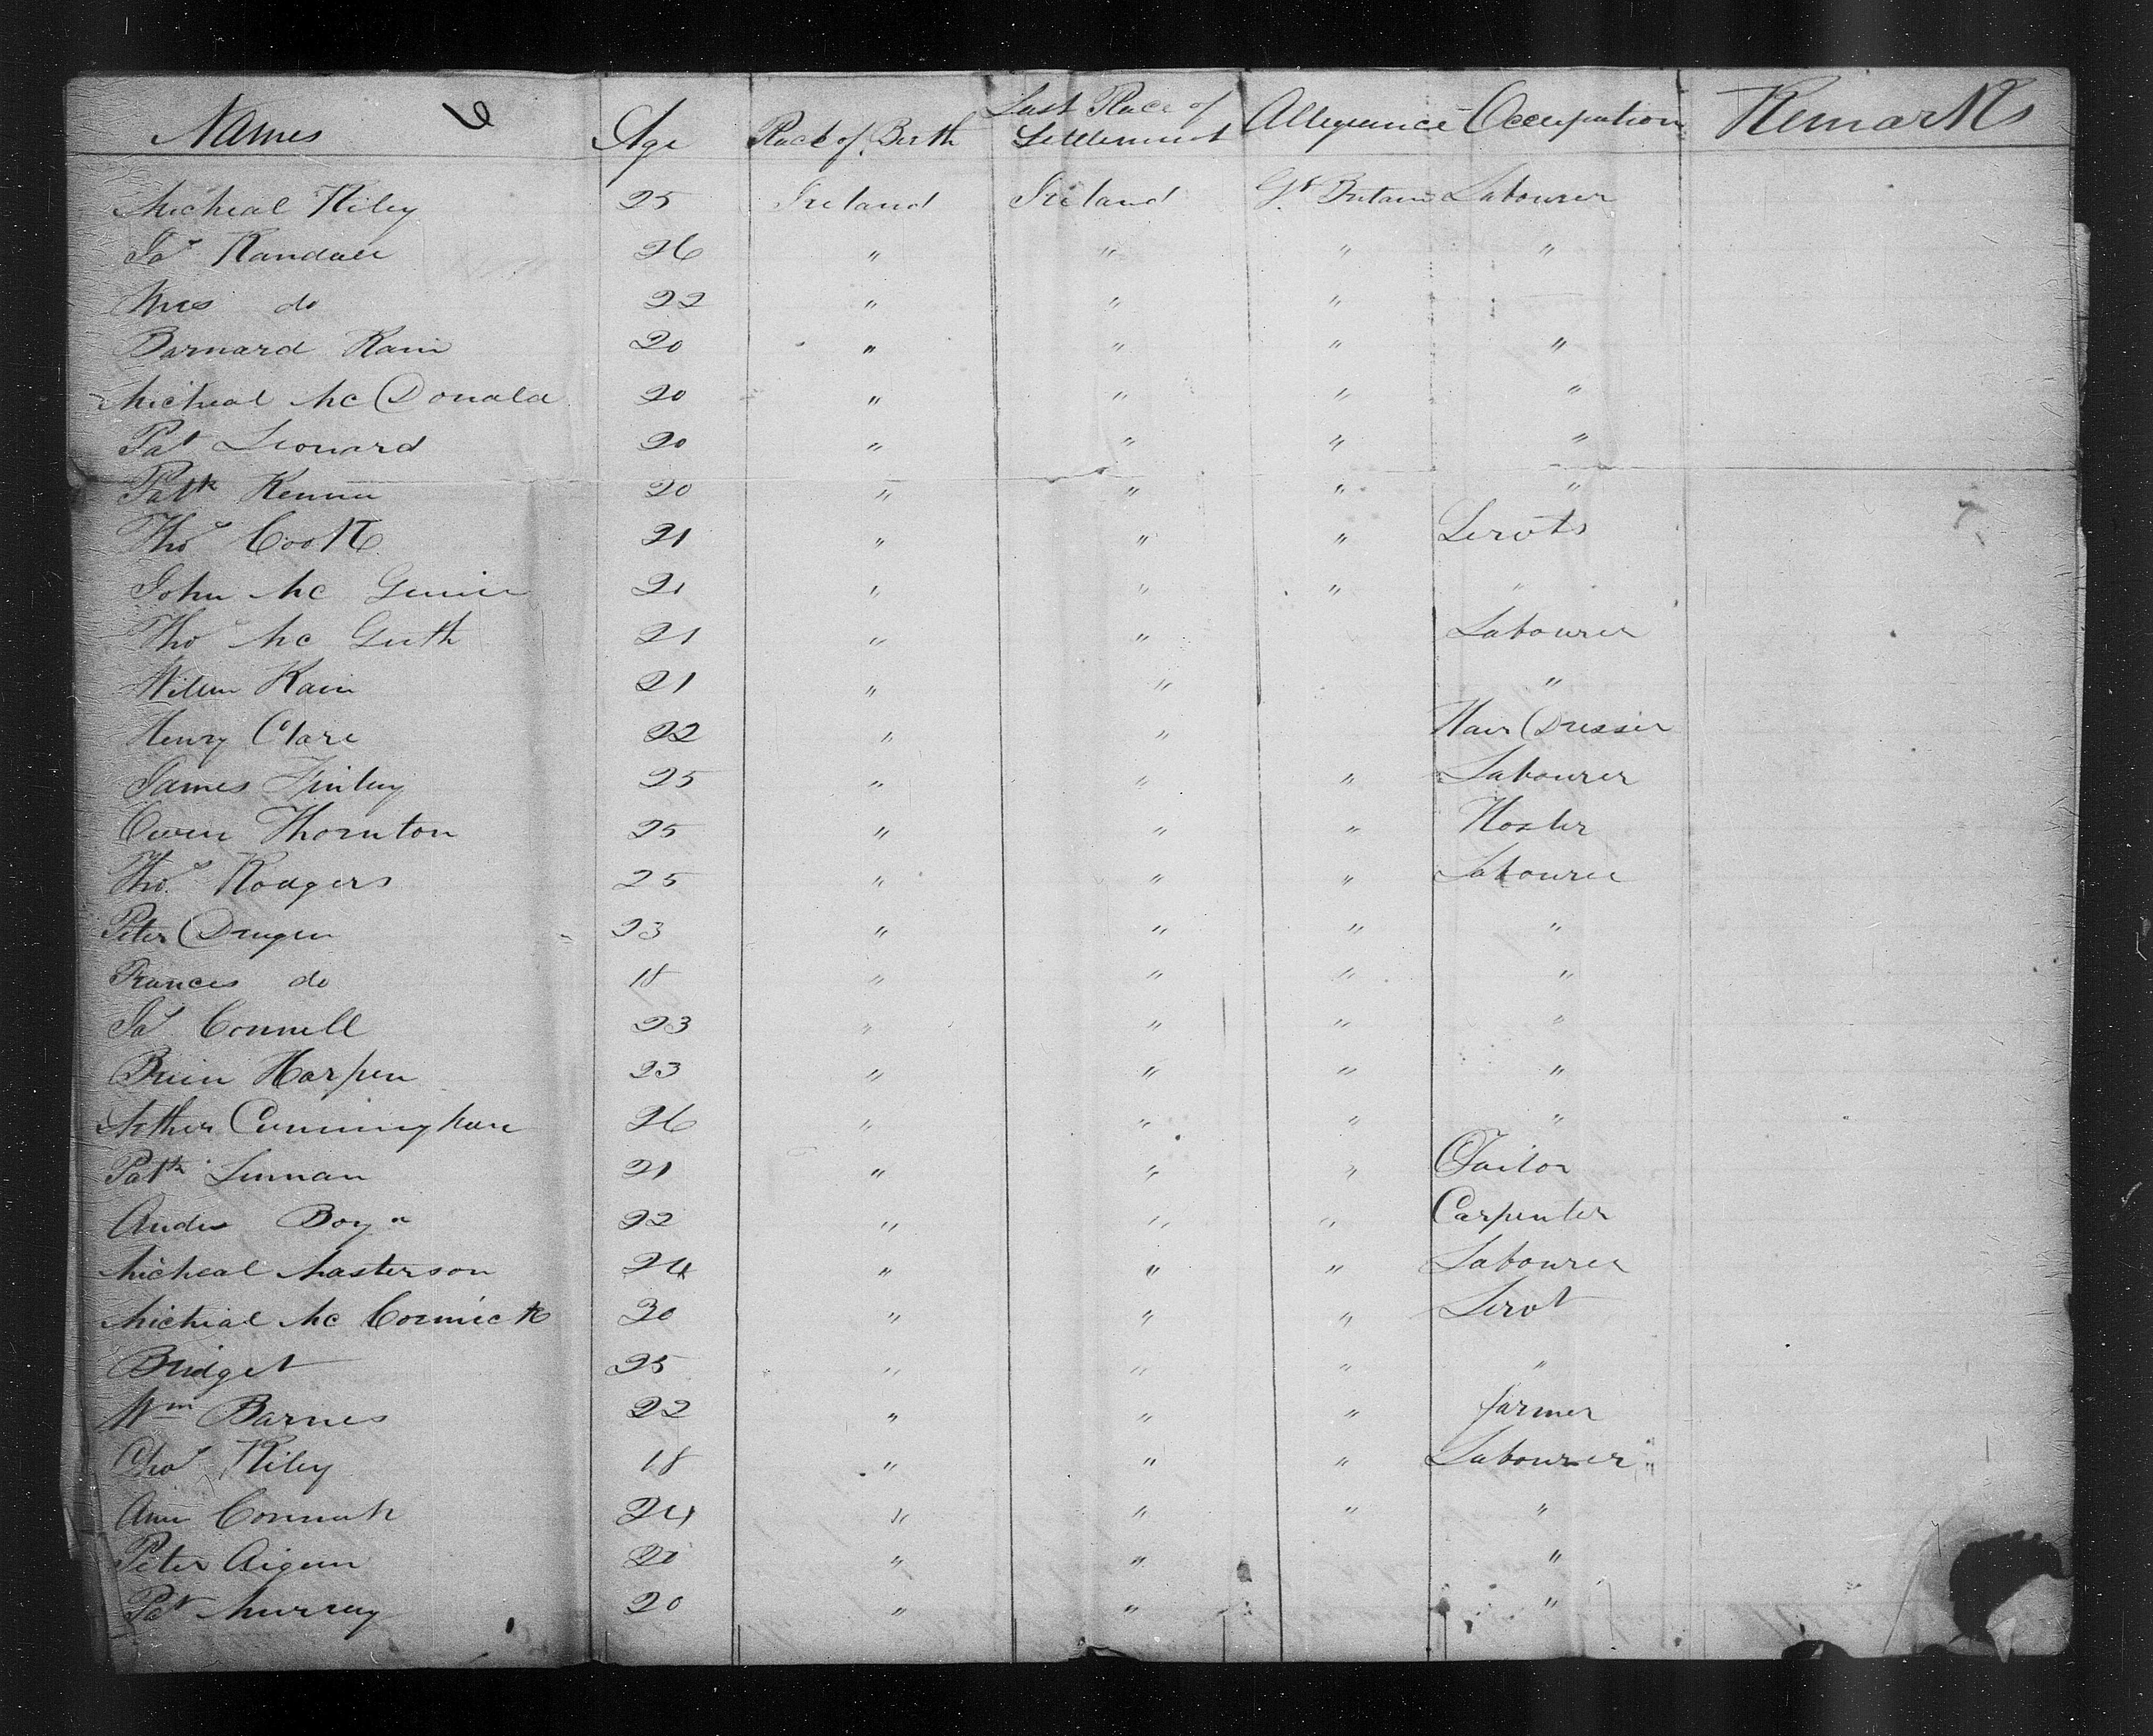 Names Age Place of Birth Last Place of Settlement Allegiance Occupation Remarks
Micheal Riley 25 Ireland Ireland Gt Britain Labourer
Jas Randall 26 " " " "
Mrs do 22 " " "
Barnard Kain 20 " " " "
Micheal Mc Donald 20 " " " "
Pat Leonard 20 " " " "
Patk 20 " " " "
Thos Cook 21 " " " Servts
John Mc 21 " " " "
Thos Mc 21 " " Labourer
Willm Kain 21 " " "
Henry Clare 22 " " Hair Dresser
James Finley 25 " " " Labourer
Owen Thornton 25 " " " Hosler
Thos Rodgers 25 " " " Labourer
Peter Dugen 23 " " " "
Frances do 18 " " " "
Jas Connell 23 " " " "
Brien Harpen 23 " " " "
Arther Cunningham 26 " " " "
Patk Linnan 21 " " " Tailor
Andw 22 " " " Carpenter
Micheal Masterson 24 " " " Labourer
Micheal Mc Cormick 30 " " " Servt
Bridget 25 " " " "
Wm Barnes 22 " " " farmer
Chas Riley 18 " " " Labourer
Ann 24 " " " "
Peter 20 " " "
Pat Murray 20 " " "